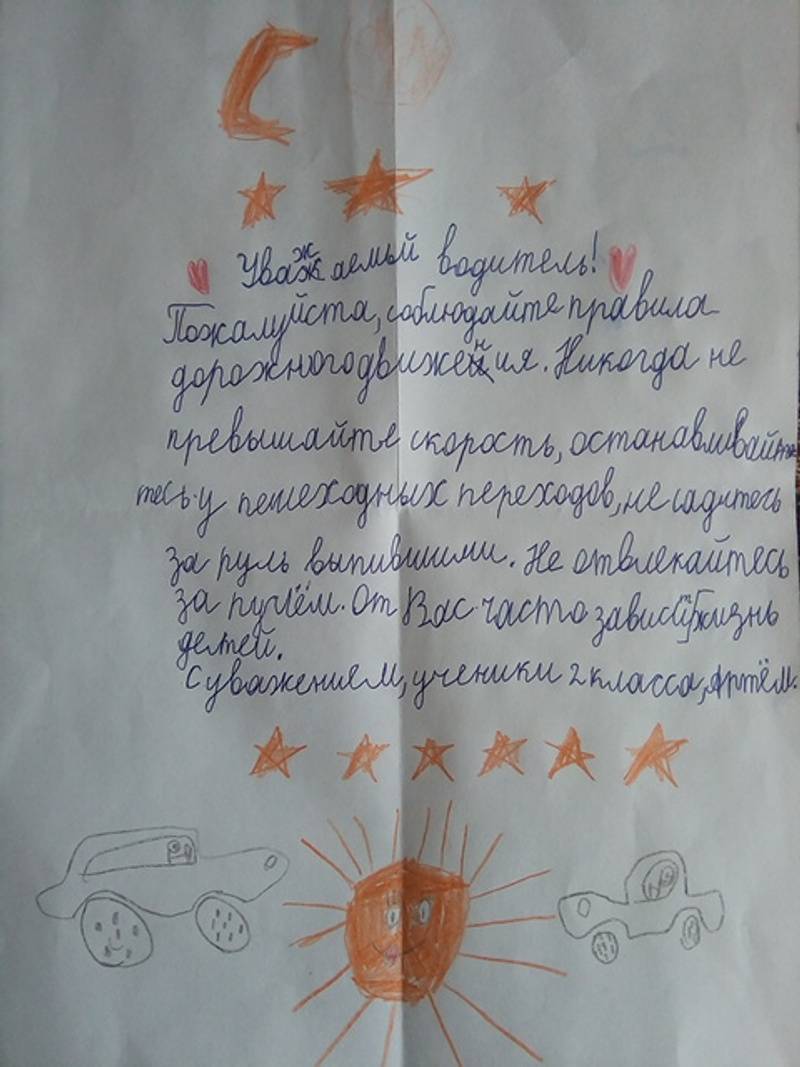 Уважаемый водитель!
Пожалуйста, соблюдайте правила
дорожного движения. Никогда не
превышайте скорость, останавливай
тесь у пешеходных переходов, не садитесь
за руль выпившими. Не отвлекайтесь
за рулём. От Вас часто зависит жизнь
детей.
С уважением, ученики 2 класса, Артём.